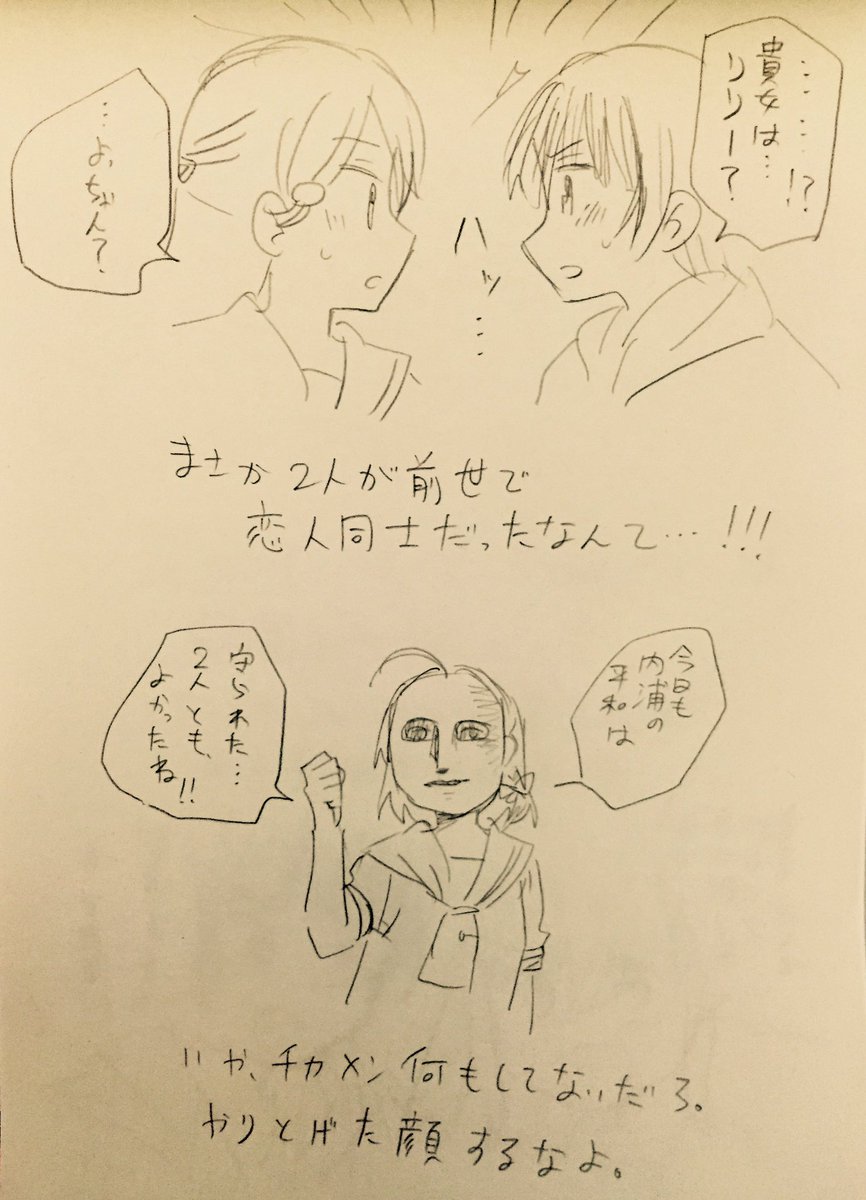 ………!?
貴女は…
リリー?
…よっちゃん?
ハッ…
まさか2人が前世で
恋人同士だったなんて…!!!
今日も
内浦の
平和は
守られた…
2人とも、
よかったね!!
いや、チカメン何もしてないだろ。
やりとげた顔するなよ。